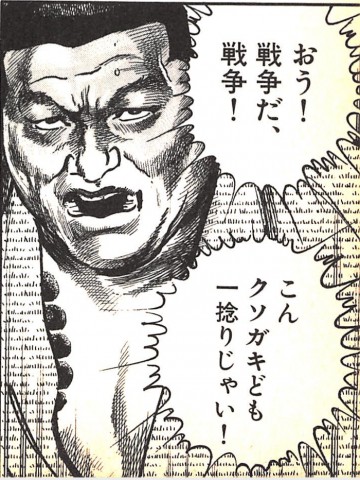 おう！
戦争だ、
戦争！
こん
クソガキども
一捻りじゃい！